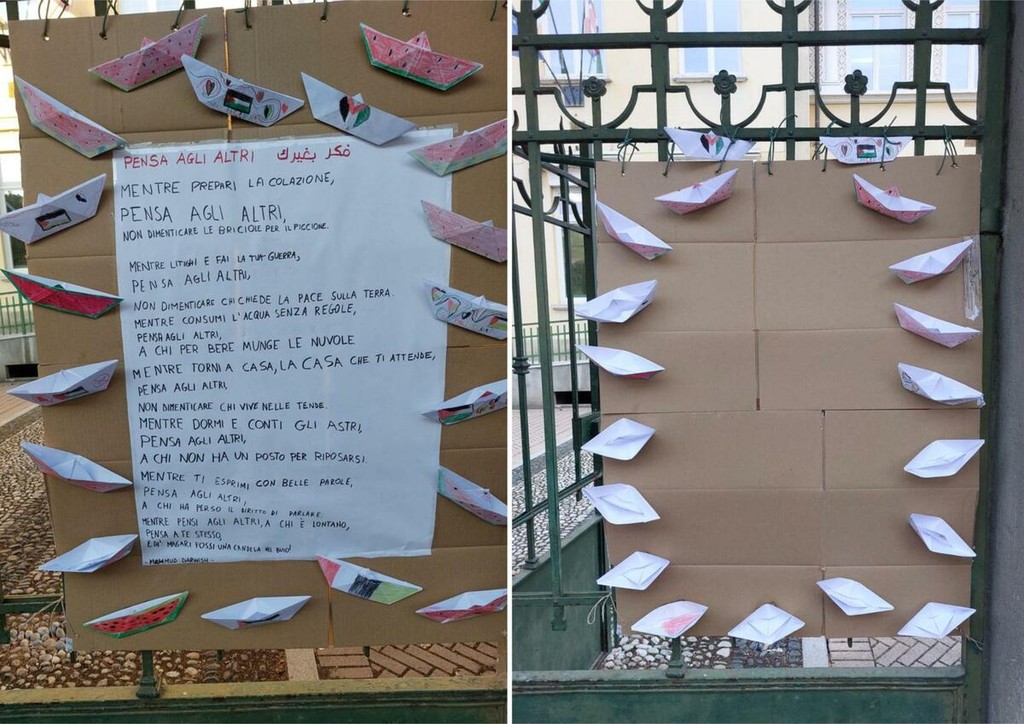 PENSA AGLI ALTRI فكر بغيرك
MENTRE PREPARI LA COLAZIONE,
PENSA AGLI ALTRI,
NON DIMENTICARE LE BRICIOLE PER IL PICCIONE.
MENTRE LITIGHI E FAI LA TUA GUERRA,
PENSA AGLI ALTRI,
NON DIMENTICARE CHI CHIEDE LA PACE SULLA TERRA.
MENTRE CONSUMI L'ACQUA SENZA REGOLE,
PENSA AGLI ALTRI,
A CHI PER BERE MUNGE LE NUVOLE
MENTRE TORNI A CASA, LA CASA CHE TI ATTENDE,
PENSA AGLI ALTRI,
NON DIMENTICARE CHI VIVE NELLE TENDE.
MENTRE DORMI E CONTI GLI ASTRI,
PENSA AGLI ALTRI,
A CHI NON HA UN POSTO PER RIPOSARSI.
MENTRE TI ESPRIMI CON BELLE PAROLE,
PENSA AGLI ALTRI,
A CHI HA PERSO IL DIRITTO DI PARLARE.
MENTRE PENSI AGLI ALTRI, A CHI È LONTANO,
PENSA A TE STESSO,
E DI' MAGARI FOSSI UNA CANDELA NEL BUIO!
- MAHMUD DARWISH -